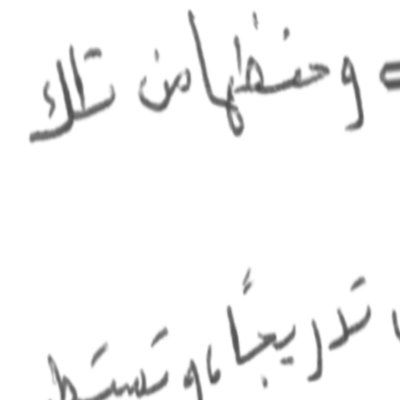 وحفظها من تلك
تدريجيًا، وتستط